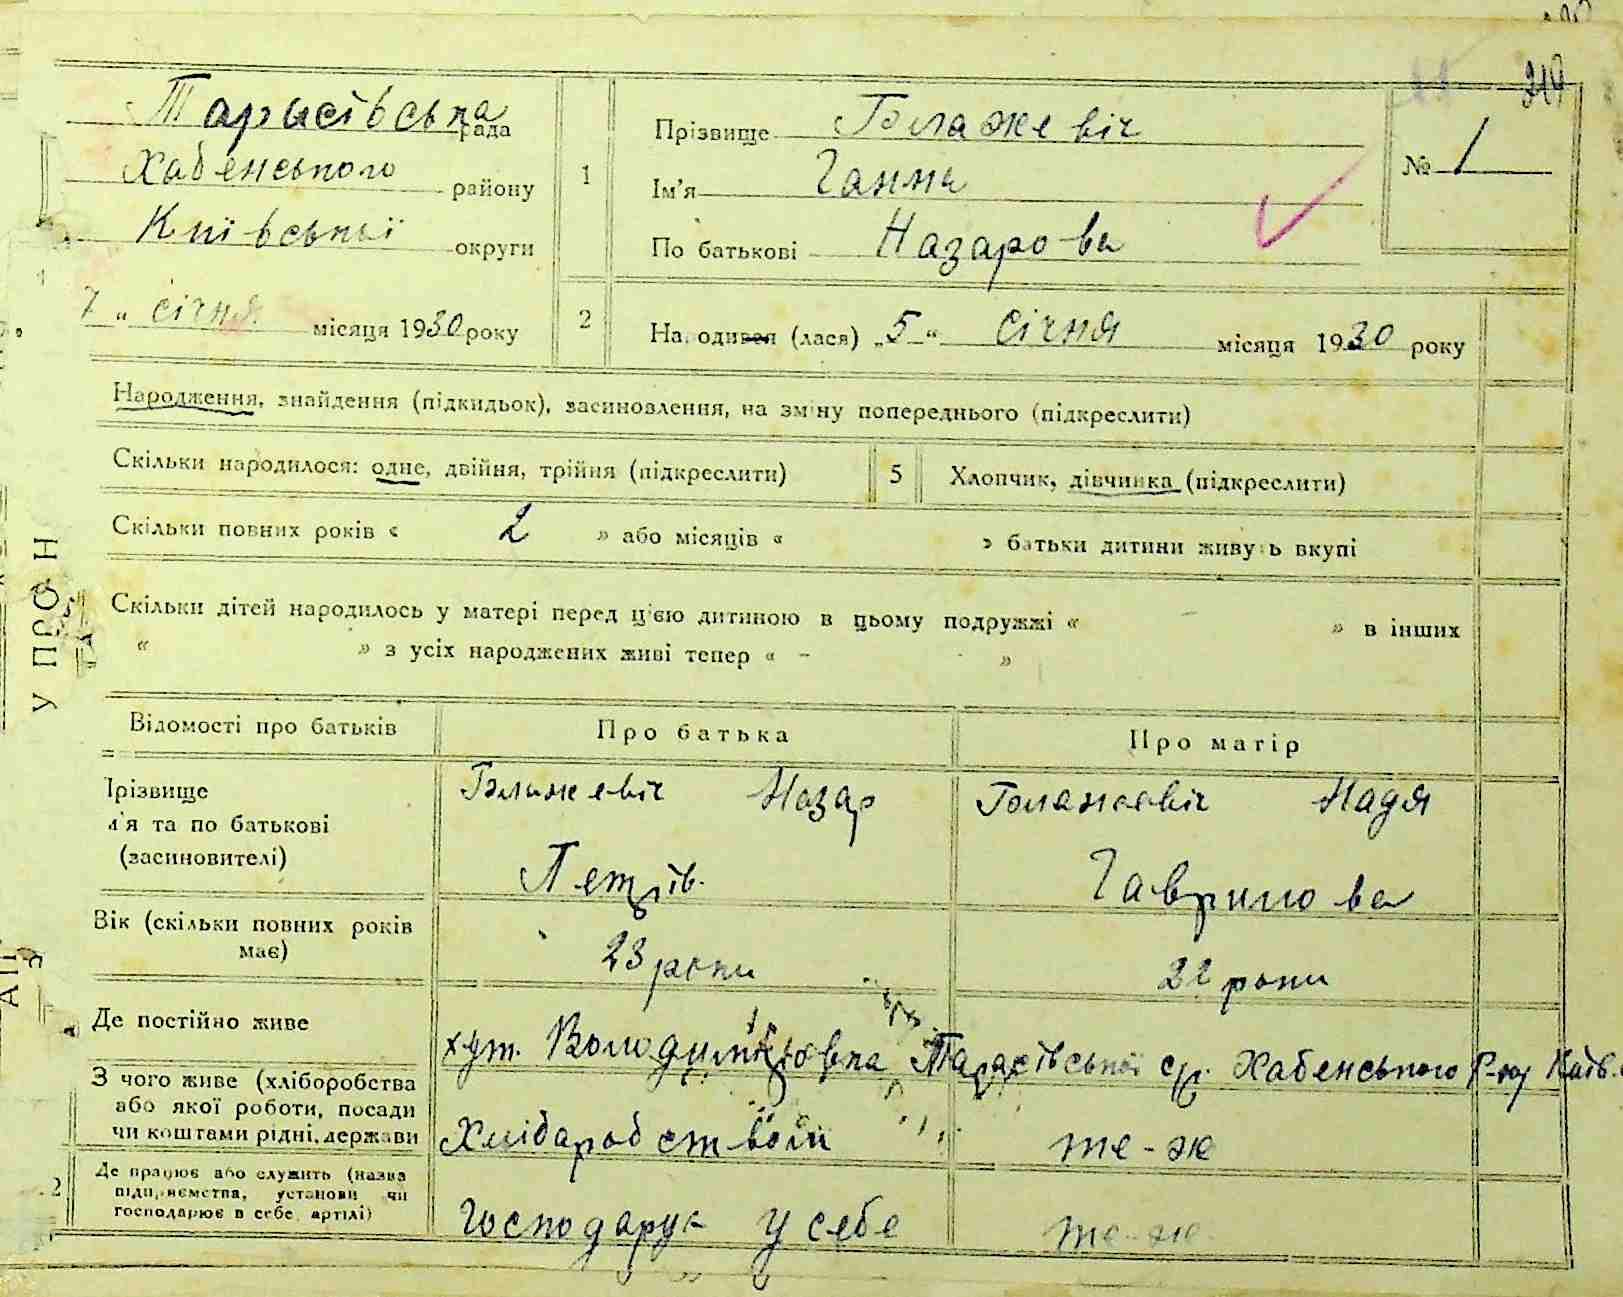 210
Тарасівська рада
Хабенського району
Київської округи
7 " січня місяця 1930 року
1
Прізвище Блажевіч
Ім'я Ганна
По батькові Назарова
№ 1
2
На одився (лася) „5" січня місяця 1930 року
Народження, знайдення (підкидьок), засиновлення, на зміну попереднього (підкреслити)
Скільки народилося: одне, двійня, трійня (підкреслити)
5
Хлопчик, дівчинка (підкреслити)
Скільки повних років « 2 » або місяців « » батьки дитини живуть вкупі
Скільки дітей народилось у матері перед ц'єю дитиною в цьому подружжі « – » в інших
« » з усіх народжених живі тепер « - »
У ПРОН
Відомості про батьків
Про батька
Про матір
Прізвище
м'я та по батькові
(засиновителі)
Блажевіч Назар
Петрів.
Блажевіч Надя
Гаврилова
Вік (скільки повних років
має)
23 роки
22 роки
Де постійно живе
хут. Володимирівка Тарасівської с/р. Хабенського Р-ну Київ.
З чого живе (хліборобства
або якої роботи, посади
чи коштами рідні, держави
Хлібаробством
те-ж
2
Де працює або служить (назва
підприємства, установи чи
господарює в себе, артілі)
Господарує у себе
те-ж